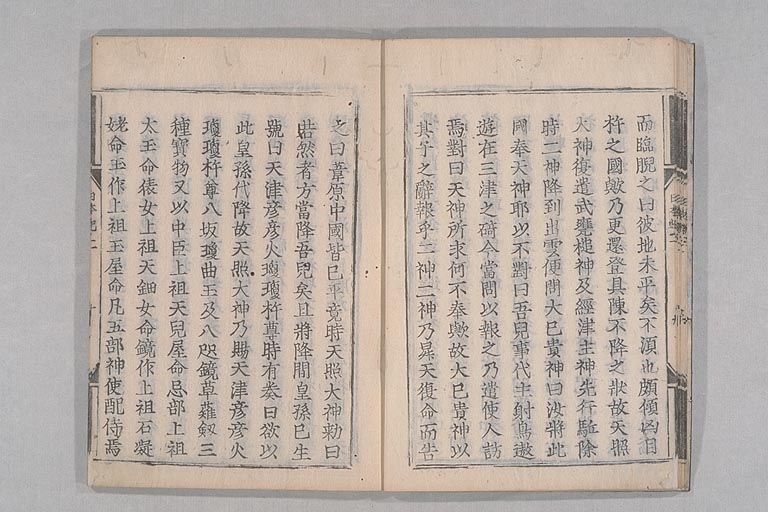 而臨睨之曰彼地未平矣不湏也頗傾凶目
杵之國歟乃更還登具陳不降之狀故天照
大神復遣武甕槌神及經津主神先行駈除
時二神降到出雲便問大巳貴神曰汝將此
國奉天神耶以不對曰吾兒事代主射鳥遨
遊在三津之碕今當問以報之乃遣使人訪
焉對曰天神所求何不奉歟故大巳貴神以
其子之辭報乎二神二神乃昇天復命而告
之曰葦原中國皆巳平竟時天照大神勅曰
若然者方當降吾兒矣且將降間皇孫巳生
號曰天津彦彦火瓊瓊杵尊時有奏曰欲以
此皇孫代降故天照大神乃賜天津彦彦火
瓊瓊杵尊八坂瓊曲玉及八咫鏡草薙劔三
種寶物又以中臣上祖天兒屋命忌部上祖
太玉命猿女上祖天鈿女命鏡作上祖石凝
姥命玉作上祖玉屋命凡五部神使配侍焉
日本紀二